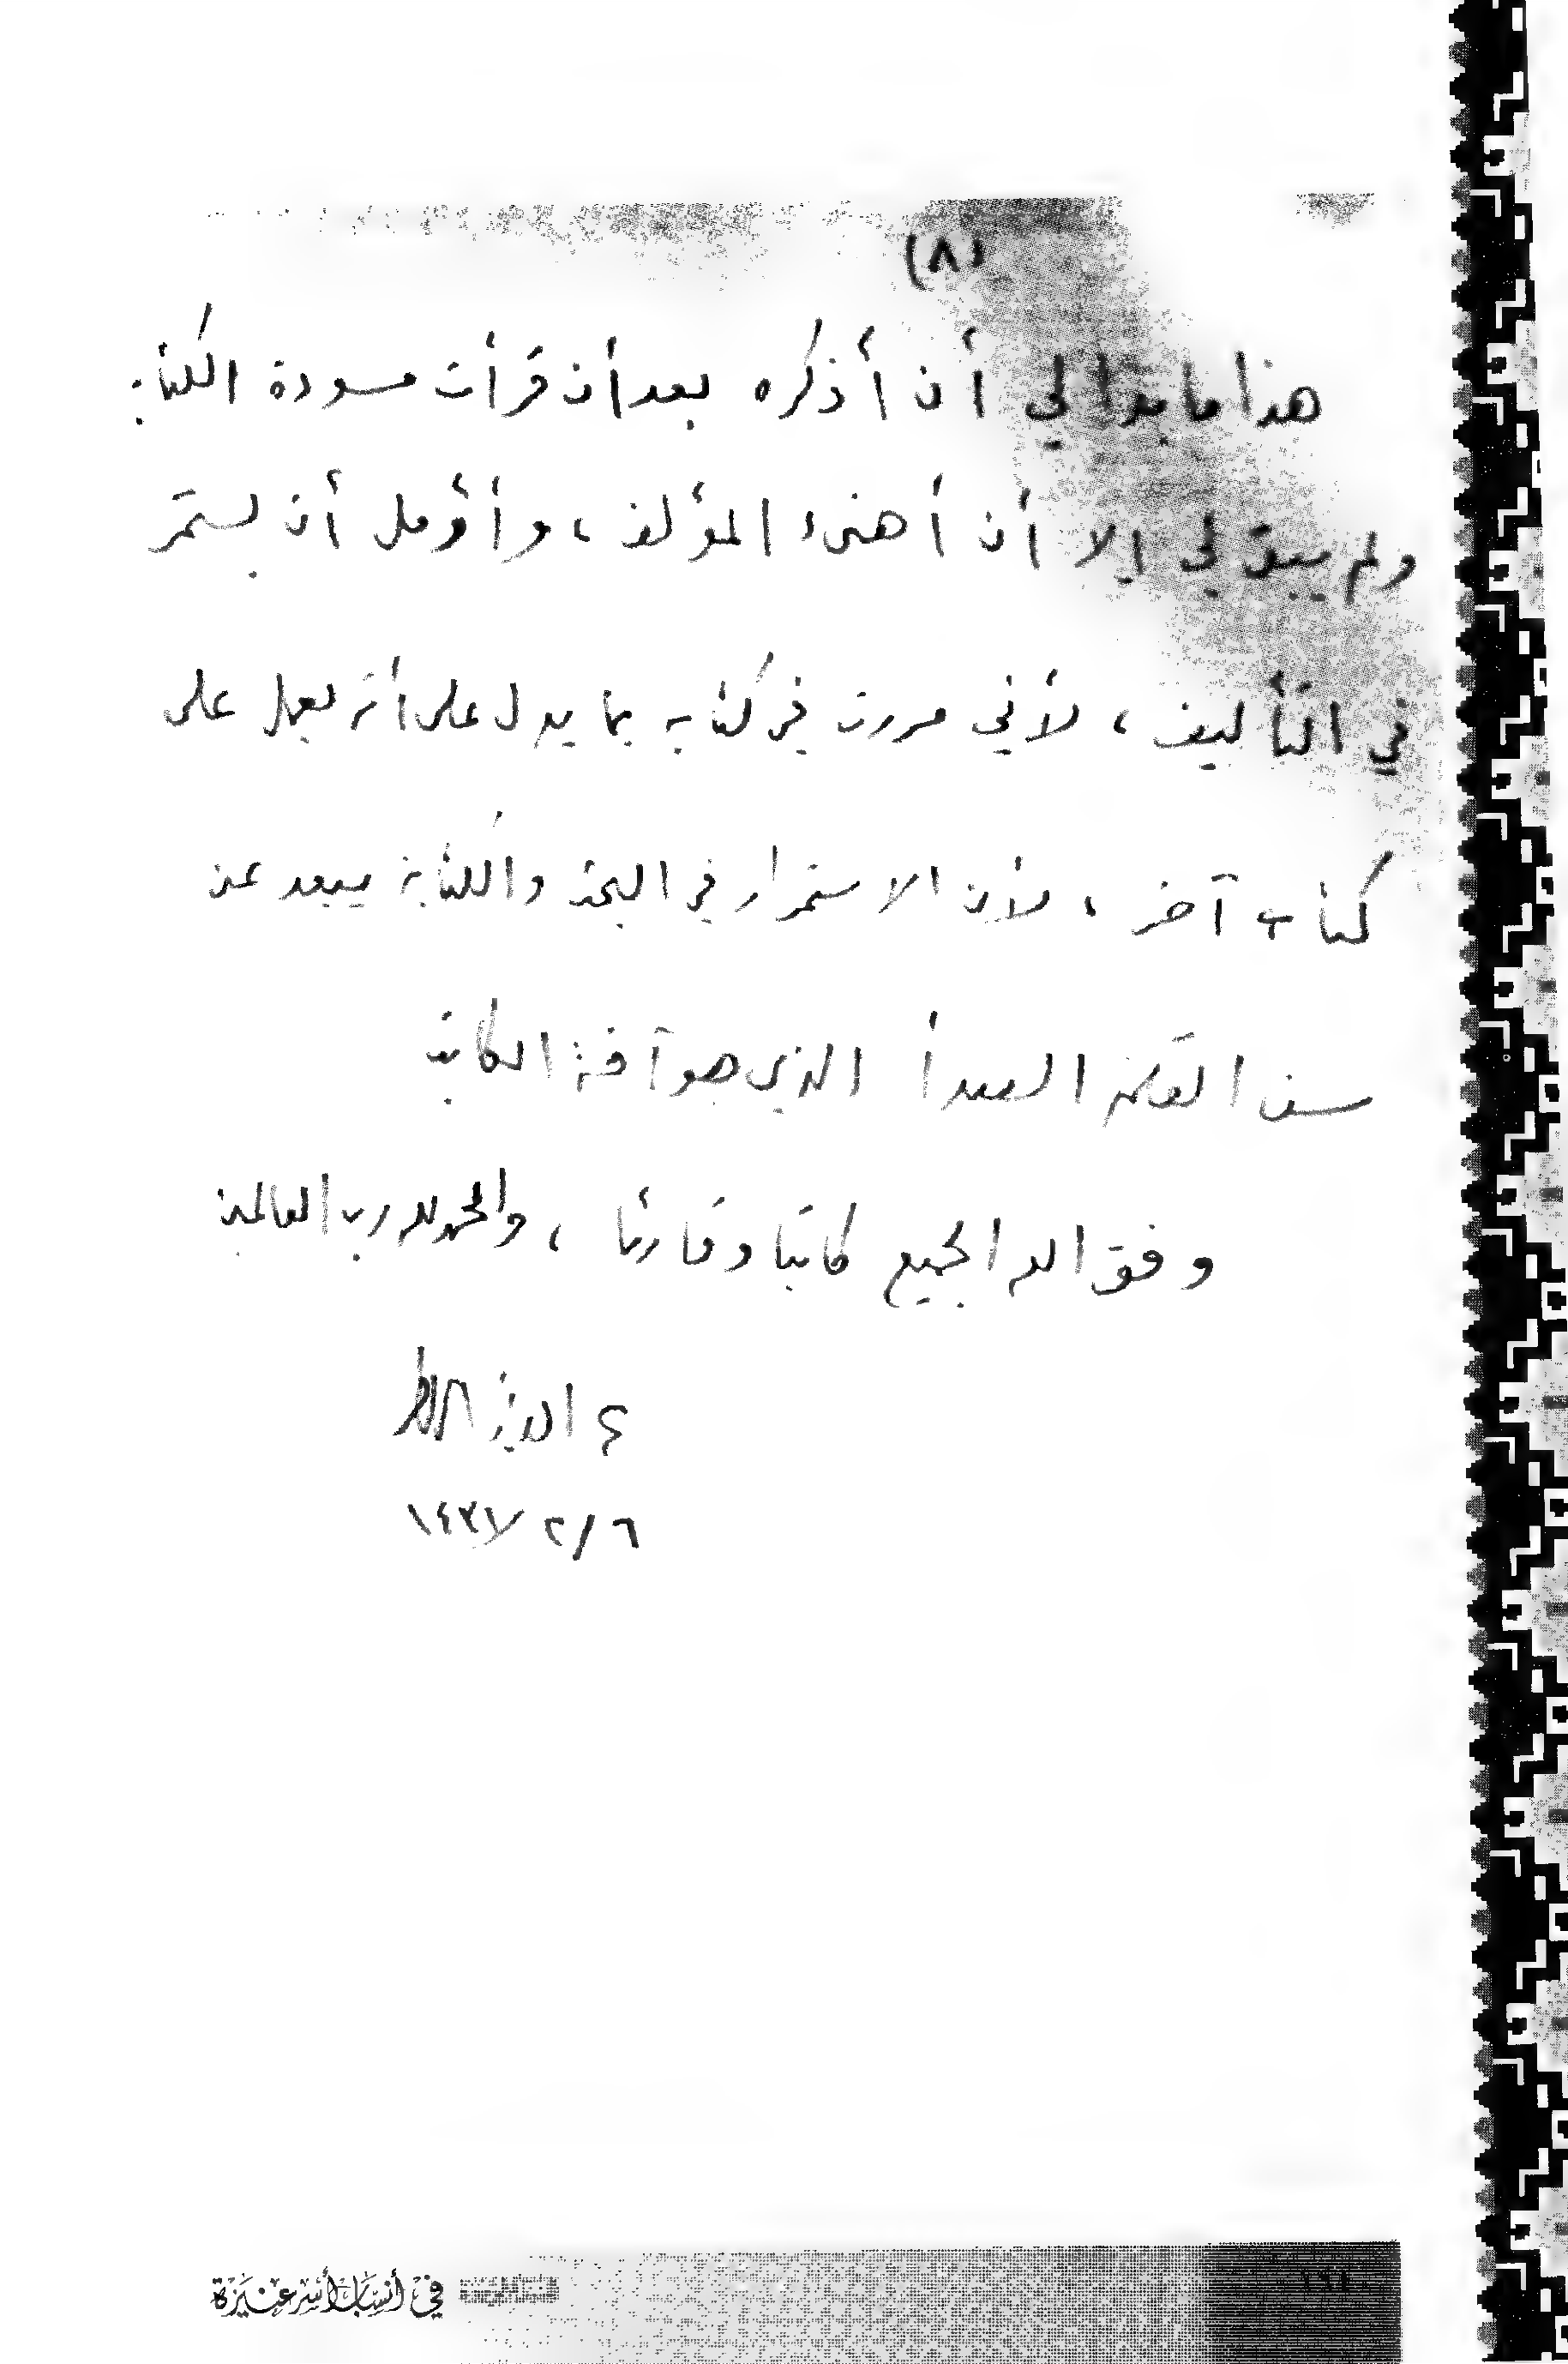 (٨)
هذا ما بدا لي أن أذكره بعد أن قرأت مسودة الكتاب
ولم يبق لي إلا أن أهنىء المؤلف، وأؤمل أن يستمر
في التأليف، لأني مررت في كتابه بما يدل على أنه يعمل على
كتاب آخر، لأن الاستمرار في البحث والكتابة يبعد عن
سن القلم الصدأ الذي هو آفة الكاتب
وفق الله الجميع كاتبا وقارئا، والحمد لله رب العالمين
٦/٢/١٤٣٧
في أنساب أسر عنيزة